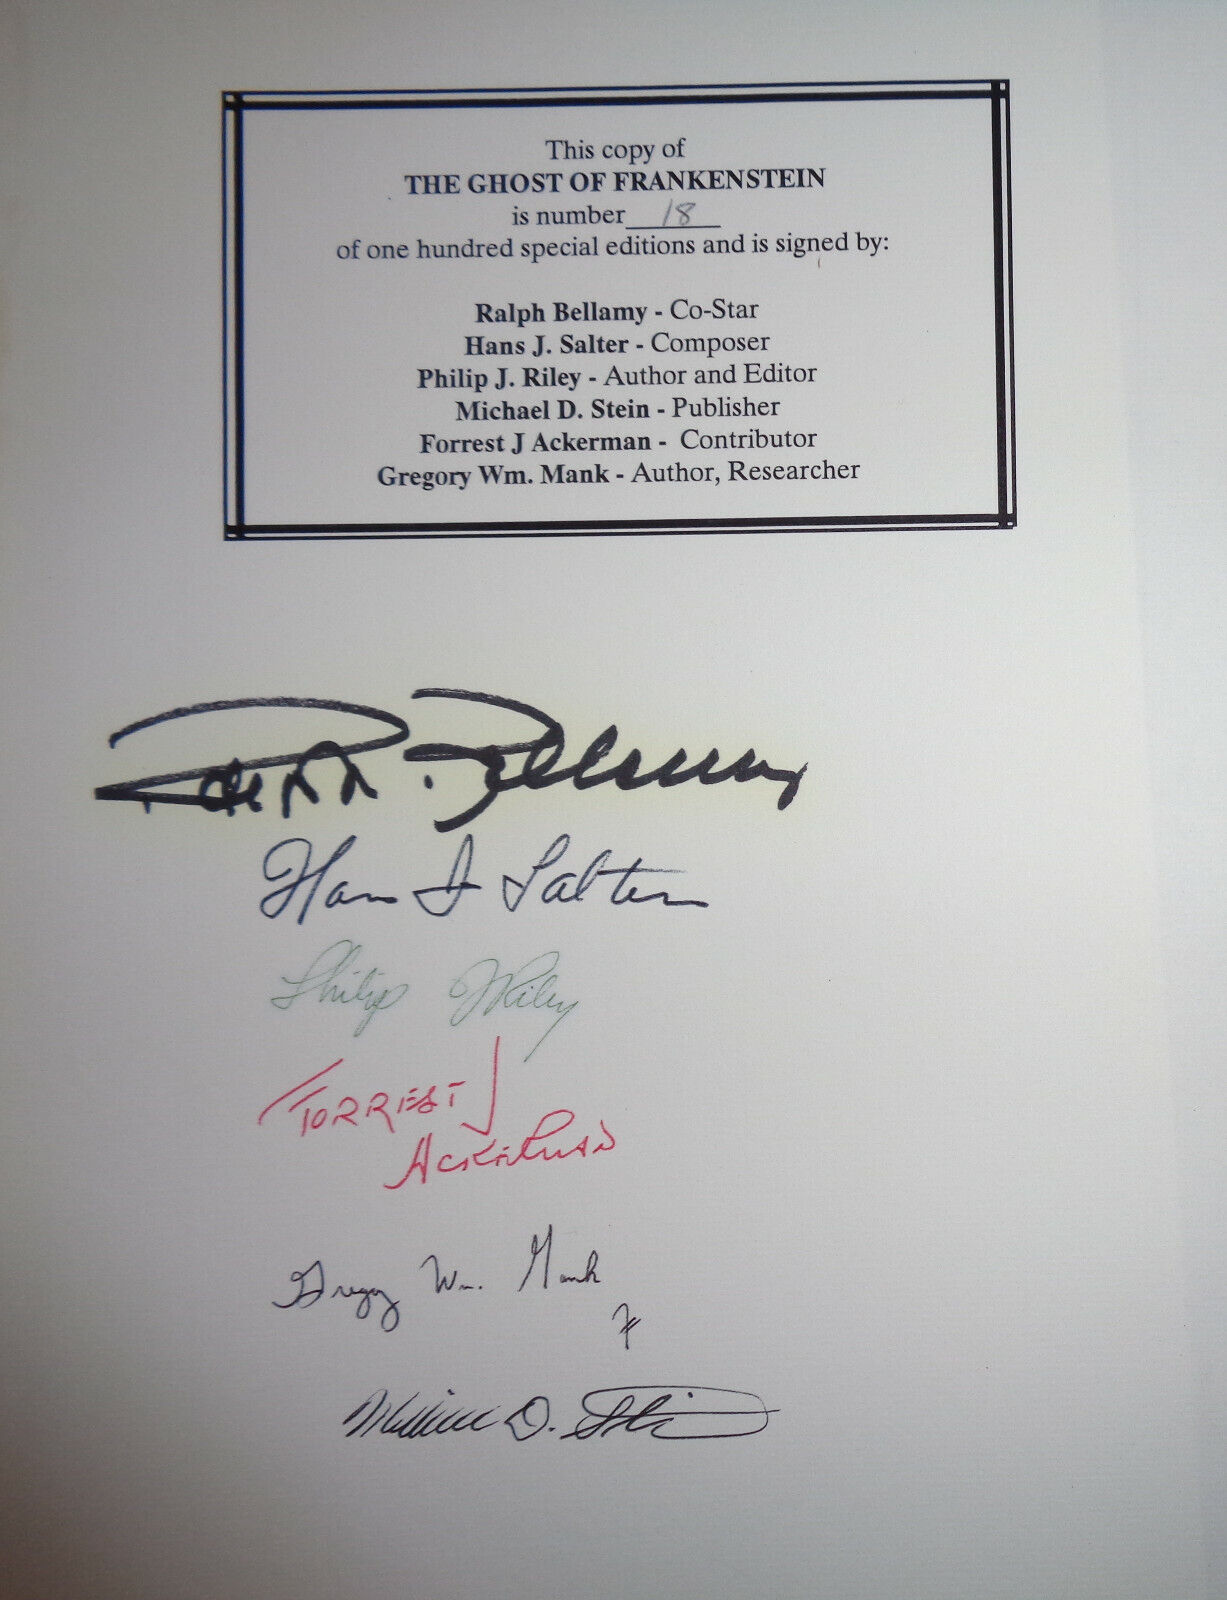 This copy of
THE GHOST OF FRANKENSTEIN
is number 18
of one hundred special editions and is signed by:
Ralph Bellamy - Co-Star
Hans J. Salter - Composer
Philip J. Riley - Author and Editor
Michael D. Stein - Publisher
Forrest J Ackerman - Contributor
Gregory Wm. Mank - Author, Researcher
Ralph Bellamy
Hans J Salter
Philip J Riley
FORREST J
ACKERMAN
Gregory Wm. Mank
Michael D. Stein